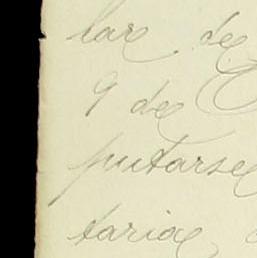 lar de
9 de
putarse
taria